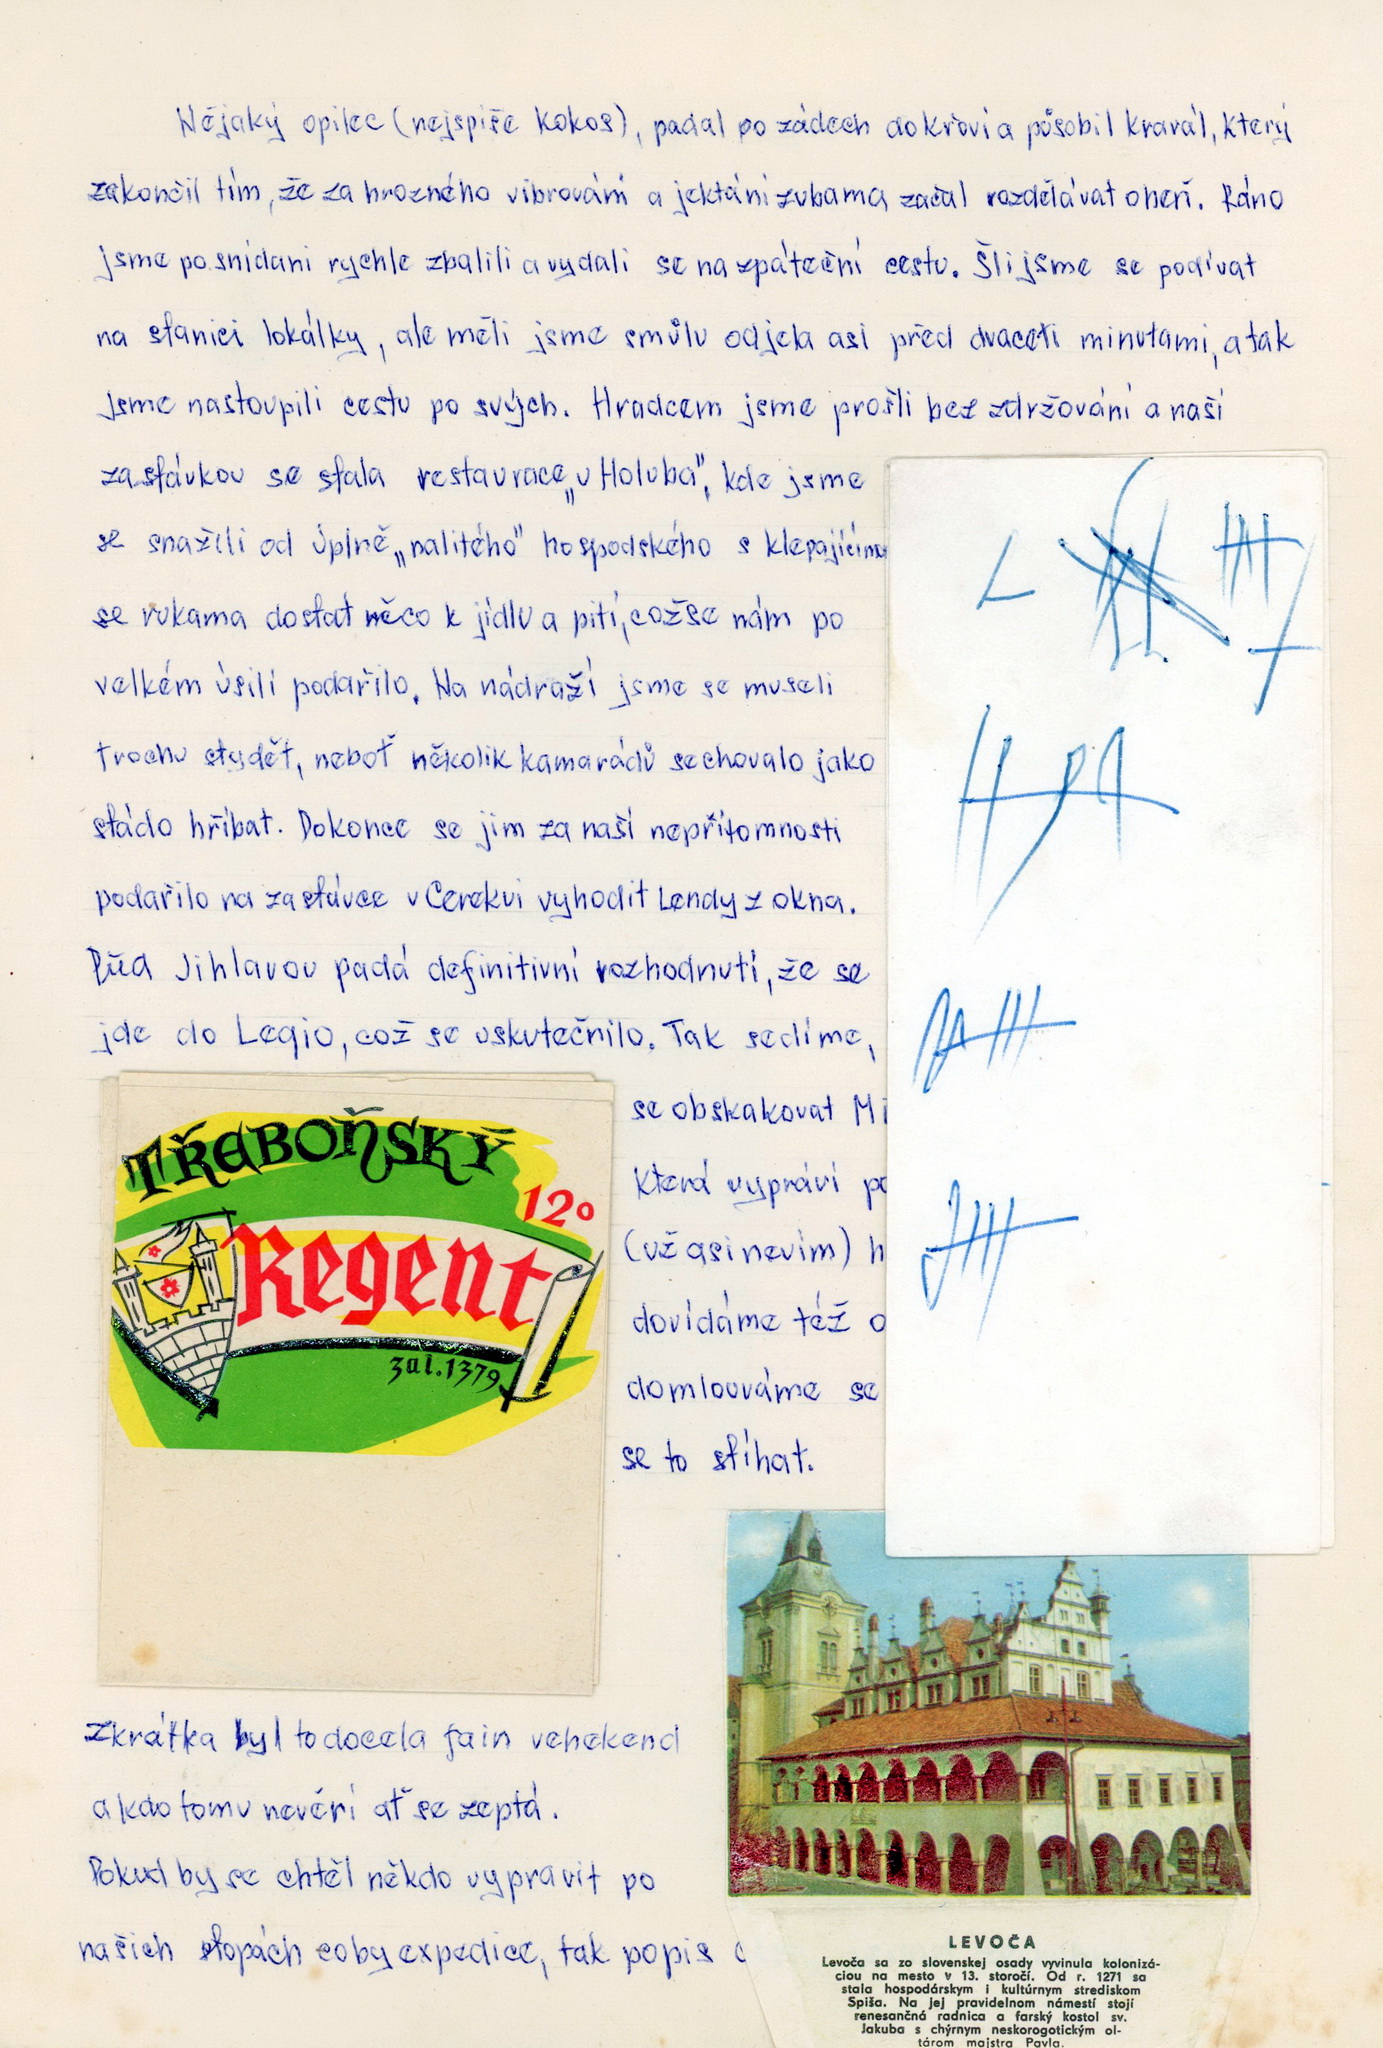 Nějaký opilec (nejspíše Kokos), padal po zádech do křoví a působil kravál, který
zakončil tím, že za hrozného vibrování a jektání zubama začal rozdělávat oheň. Ráno
jsme po snídani rychle zbalili a vydali se na zpáteční cestu. Šli jsme se podívat
na stanici lokálky, ale měli jsme smůlu odjela asi před dvaceti minutami, a tak
jsme nastoupili cestu po svých. Hradcem jsme prošli bez zdržování a naší
zastávkou se stala restaurace „u Holuba", kde jsme
se snažili od úplně „nalitého" hospodského s klepajícíma
se rukama dostat něco k jídlu a pití, což se nám po
velkém úsilí podařilo. Na nádraží jsme se museli
trochu stydět, neboť několik kamarádů se chovalo jako
stádo hříbat. Dokonce se jim za naší nepřítomnosti
podařilo na zastávce v Cerekvi vyhodit Lendy z okna.
Před Jihlavou padá definitivní rozhodnutí, že se
jde do Legio, což se uskutečnilo. Tak sedíme,
se obskakovat Mi
která vypráví po
(už asi nevím) h
dovídáme též o
domlouváme se
se to stíhat.
TŘEBOŇSKÝ
12°
Regent
zal. 1379
zkrátka byl to docela fain vehekend
a kdo tomu nevěří ať se zeptá.
Pokud by se chtěl někdo vypravit po
našich stopách coby expedice, tak popis
LEVOČA
Levoča sa zo slovenskej osady vyvinula kolonizá-
ciou na mesto v 13. storočí. Od r. 1271 sa
stala hospodárskym i kultúrnym strediskom
Spiša. Na jej pravidelnom námestí stojí
renesančná radnica a farský kostol sv.
Jakuba s chýrnym neskorogotickým ol-
tárom majstra Pavla.